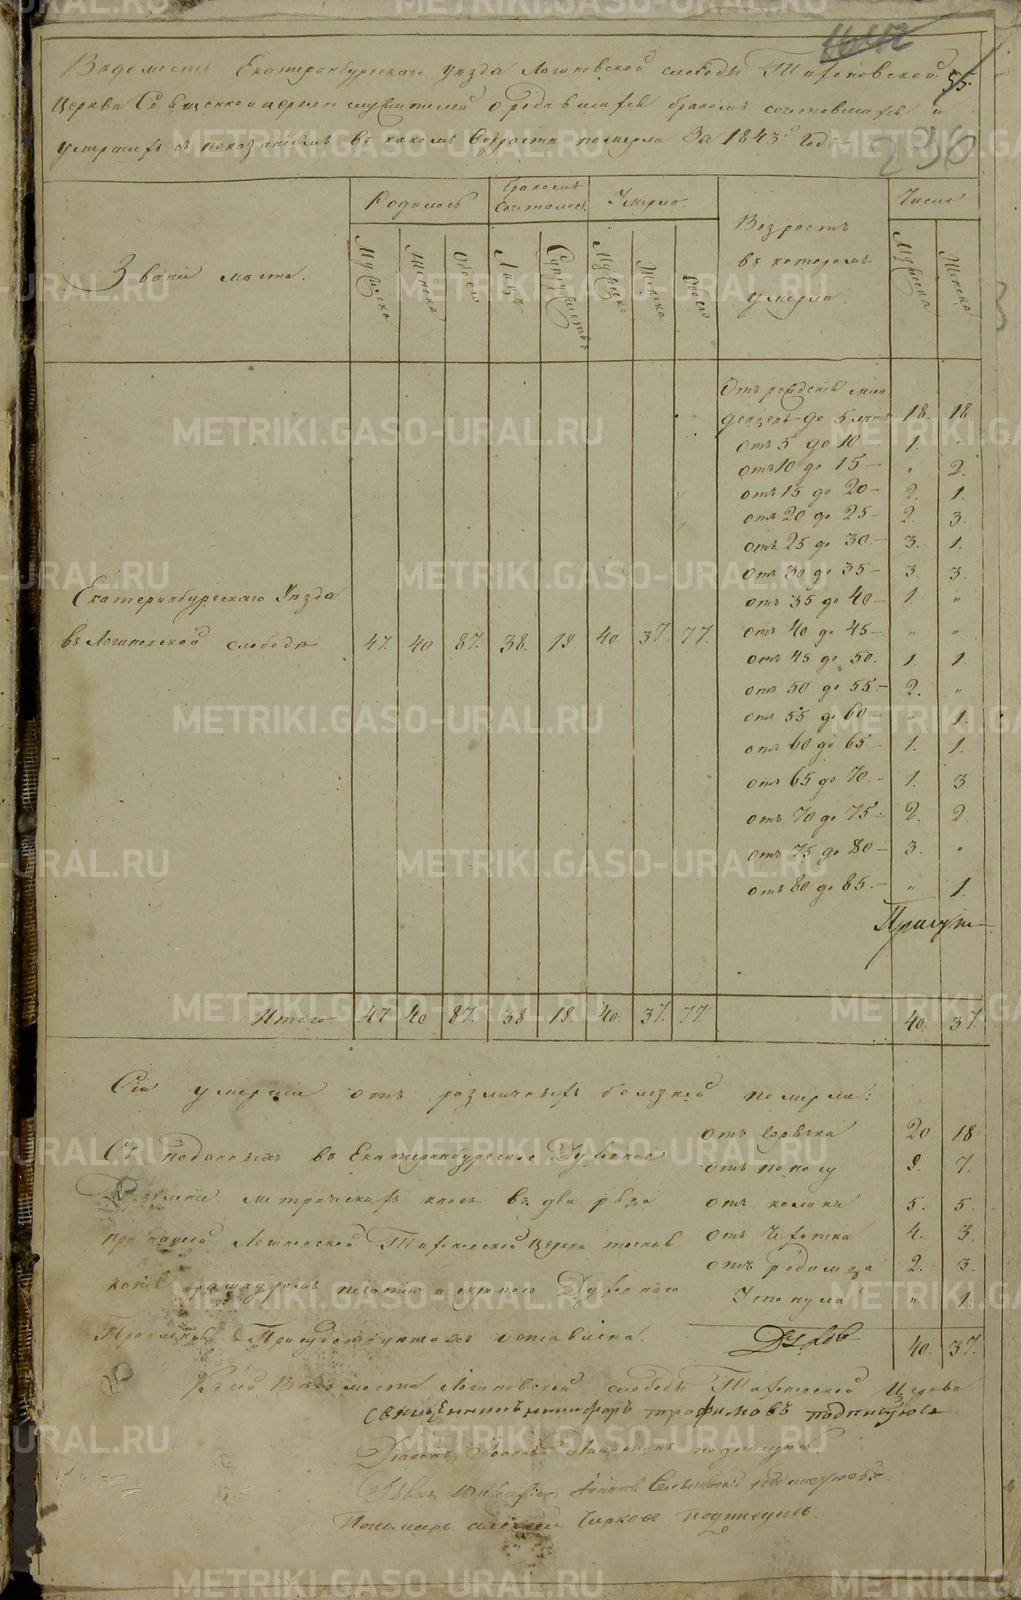 Ведомость Екатеринбургскаго уезда Логиновской слободы Тихоновской
церкви Священно и церковно служителей о родившихся бракомъ сочетавшихся и
умершихъ съ показаниемъ въ какомъ возрасте померли За 1843й Годъ
55.
236
Звание места.
Родилось
Мужеска
Женска
Обоего
Бракомъ Сочеталось
Лицъ
Супружествъ
Умерло.
Мужеска
Женска
Обоего
Возрастъ
въ которомъ
умерли.
Число
Мужеска
Женска
Отъ рождения мла
денцевъ до 5 летъ 18. 18
отъ 5 до 10 1. "
отъ 10 до 15 " 2.
отъ 15 до 20 2. 1.
отъ 20 до 25 2. 3.
отъ 25 до 30 3. 1.
отъ 30 до 35 3. 3.
отъ 35 до 40 1. "
отъ 40 до 45 " "
отъ 45 до 50. 1. 1.
отъ 50 до 55 2. "
отъ 55 до 60 " 1.
отъ 60 до 65 1. 1.
отъ 65 до 70. 1. 3.
отъ 70 до 75 2. 2.
отъ 75 до 80 3. "
отъ 80 до 85. " 1.
Екатеринбургскаго Уезда
въ Логиновской слободе 47. 40 87. 38. 19. 40 37. 77.
Итого 47 40 87. 38 19. 40. 37. 77. 40. 37.
Сии умершие отъ различныхъ болезней померли:
отъ горячки 20 18
отъ поносу 9. 7.
отъ колики 5. 5.
отъ Чахотки 4. 3.
отъ родимца 2. 3.
Утонула " 1.
40. 37.
Съ поданныхъ въ Екатеринбургское Духовное
Правление метрическихъ книгъ въ два ряда
при нашей Логиновской Тихоновской церкви
печатию Духовного
Правления Присудствующаго оставлена.
Къ сей Ведомости Логиновской слободы Тихоновской Церкви
священникъ никифоръ трофимовъ подписуюсь
Диаконъ подписуюсь
Пономарь алексей Чирковъ подписуюсь
METRIKI.GASO-URAL.RU